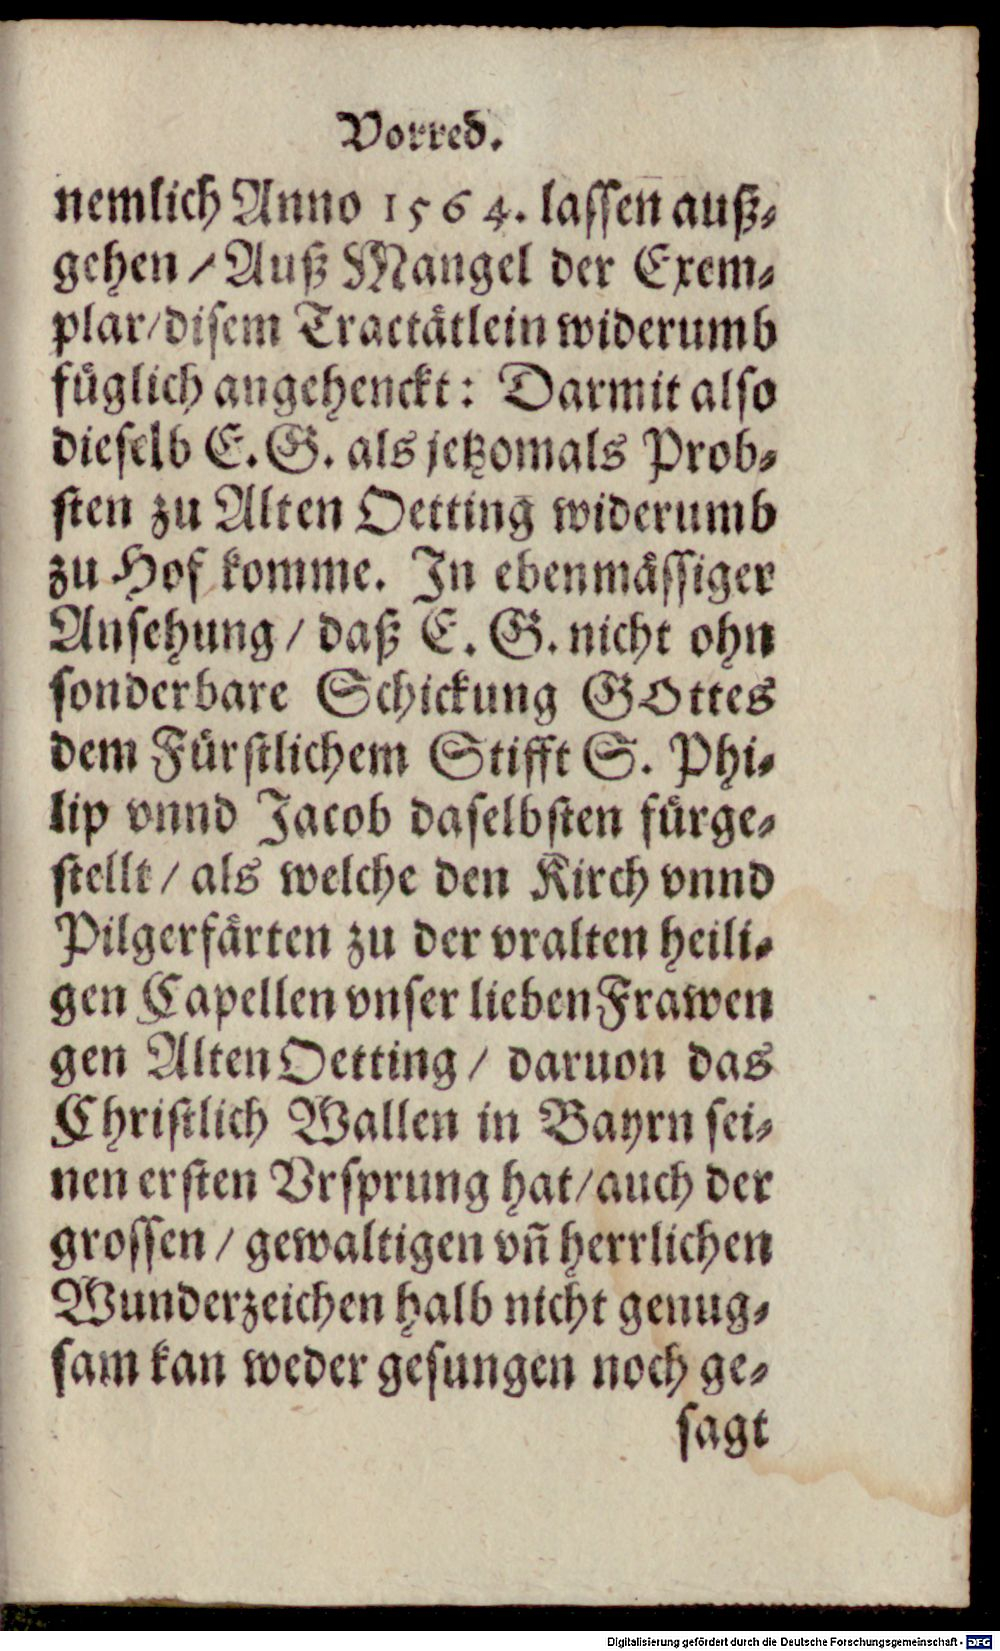 Vorred.
nemlich Anno 1564. lassen auß-
gehen / Auß Mangel der Exem-
plar/disem Tractätlein widerumb
füglich angehenckt: Darmit also
dieselb E. G. als jetzomals Prob-
sten zu Alten Oetting widerumb
zu Hof komme. In ebenmässiger
Ansehung / daß E. G. nicht ohn
sonderbare Schickung GOttes
dem Fürstlichem Stifft S. Phi-
lip vnnd Jacob daselbsten fürge-
stellt / als welche den Kirch vnnd
Pilgerfärten zu der vralten heili-
gen Capellen vnser lieben Frawen
gen Alten Oetting / daruon das
Christlich Wallen in Bayrn sei-
nen ersten Vrsprung hat/auch der
grossen / gewaltigen vñ herrlichen
Wunderzeichen halb nicht genug-
sam kan weder gesungen noch ge-
sagt
Digitalisierung gefördert durch die Deutsche Forschungsgemeinschaft - DFG